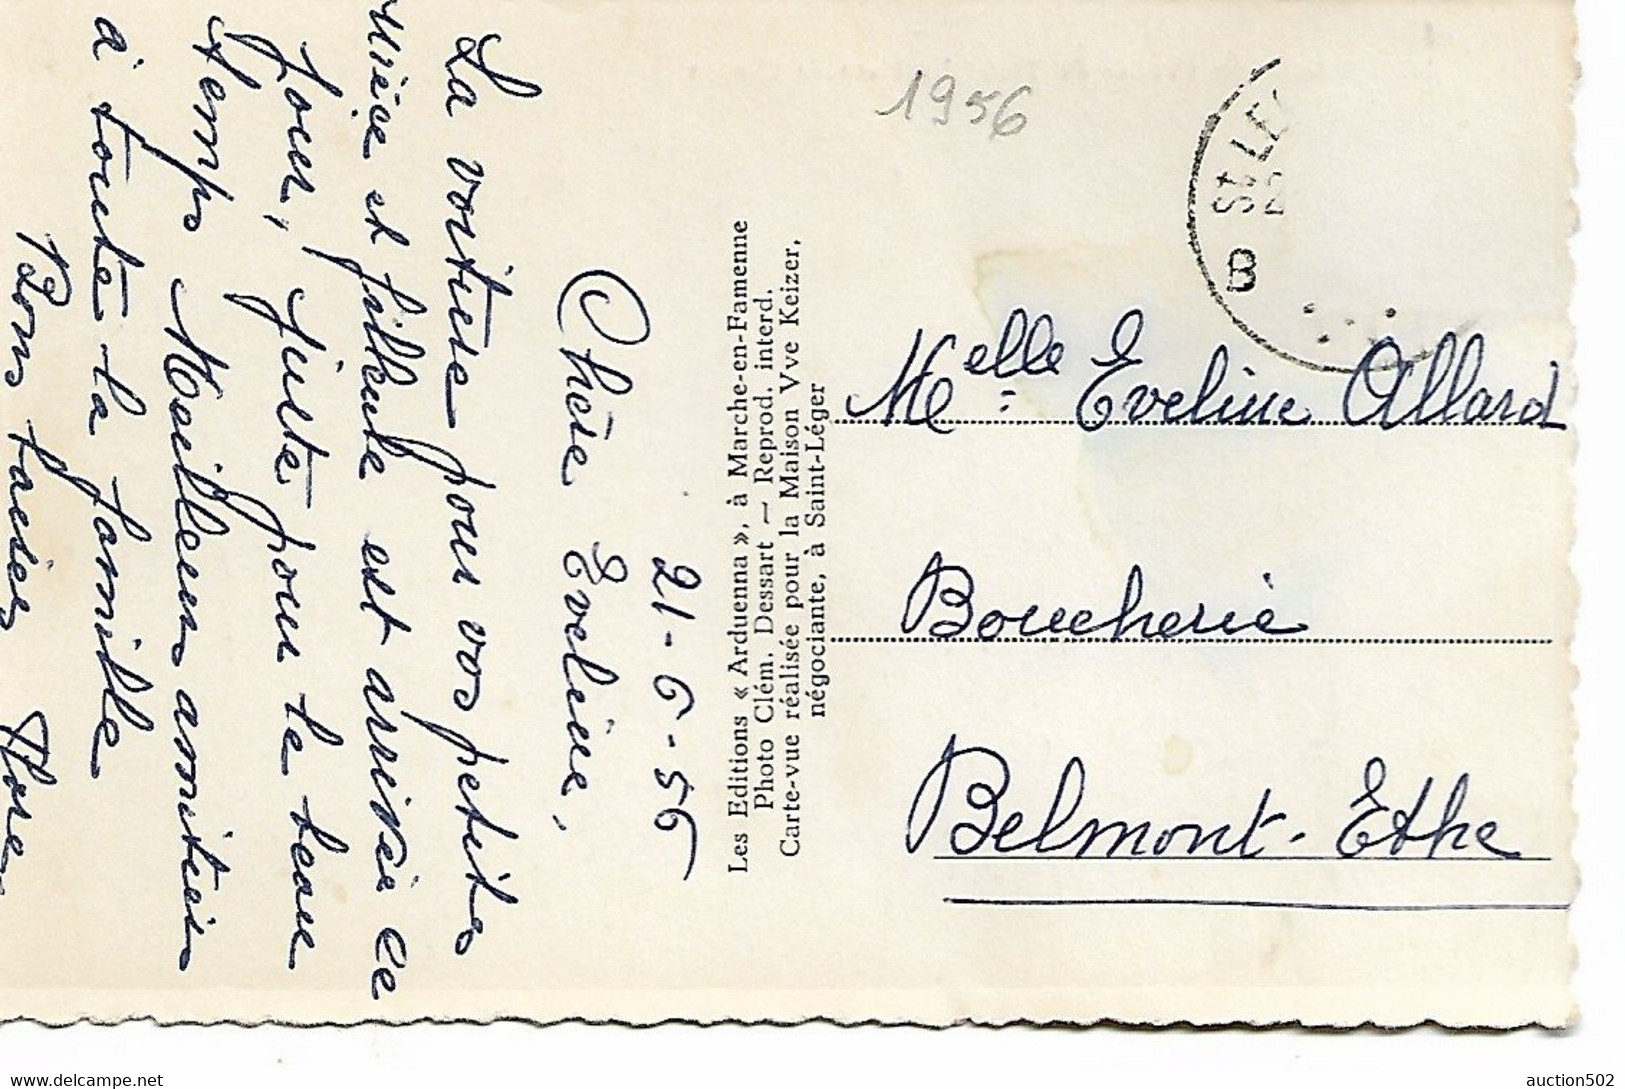 1956
St LE
B
Melle Eveline Allard
Boucherie
Belmont-Ethe
Les Editions « Arduenna », à Marche-en-Famenne
Photo Clém. Dessart — Reprod. interd.
Carte-vue réalisée pour la Maison Vve Keizer,
négociante, à Saint-Léger
21-6-56
Chère Eveline,
La voiture pour vos petits
nièce et filleule est arrivée ce
jour, juste pour le beau
temps Meilleurs amitiés
à toute la famille
Bons baisers
www.delcampe.net
auction502